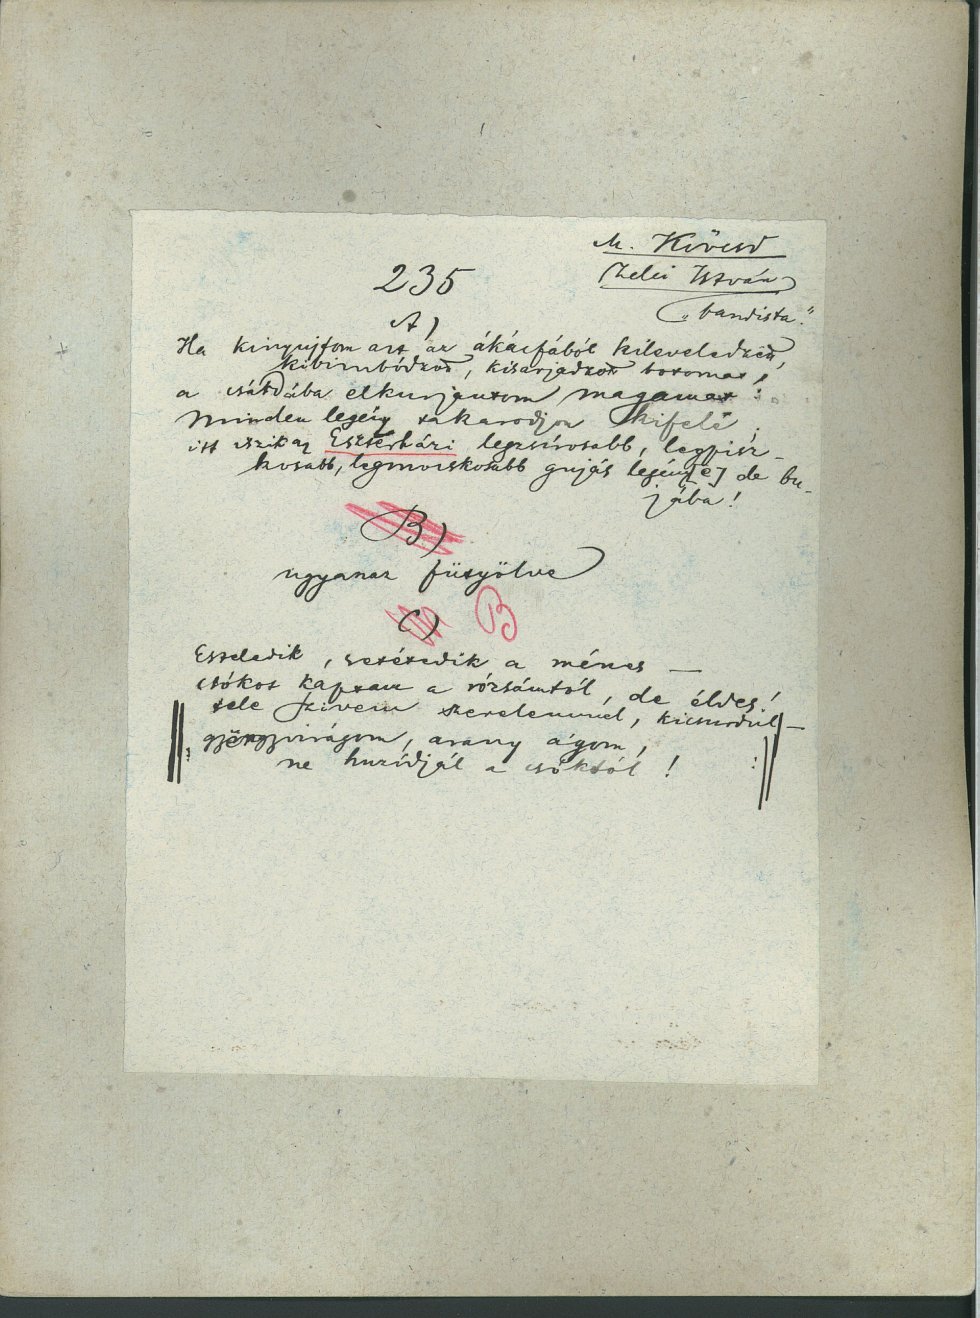 M. Kövesd
Zelei István
„bandista"
235
A)
Ha kinyujtom azt az ákácfából kileveledzett
kibimbódzott, kisarjadzott botomat,
a csárdába elkurjantom magamat :
Minden legény takarodjon kifelé,
itt iszik az Eszterházi legzsirosabb, legpisz-
kosabb, legmocskosabb gujás legény[e] de bu-
jába!
B)
ugyanaz fütyölve
C) B
Esteledik, setétedik a ménes —
csókot kaptam a rózsámtól, de éldes!
tele szivem szerelemmel, kicsordul —
gyöngyvirágom, arany ágom,
ne huzódjál a csóktól!